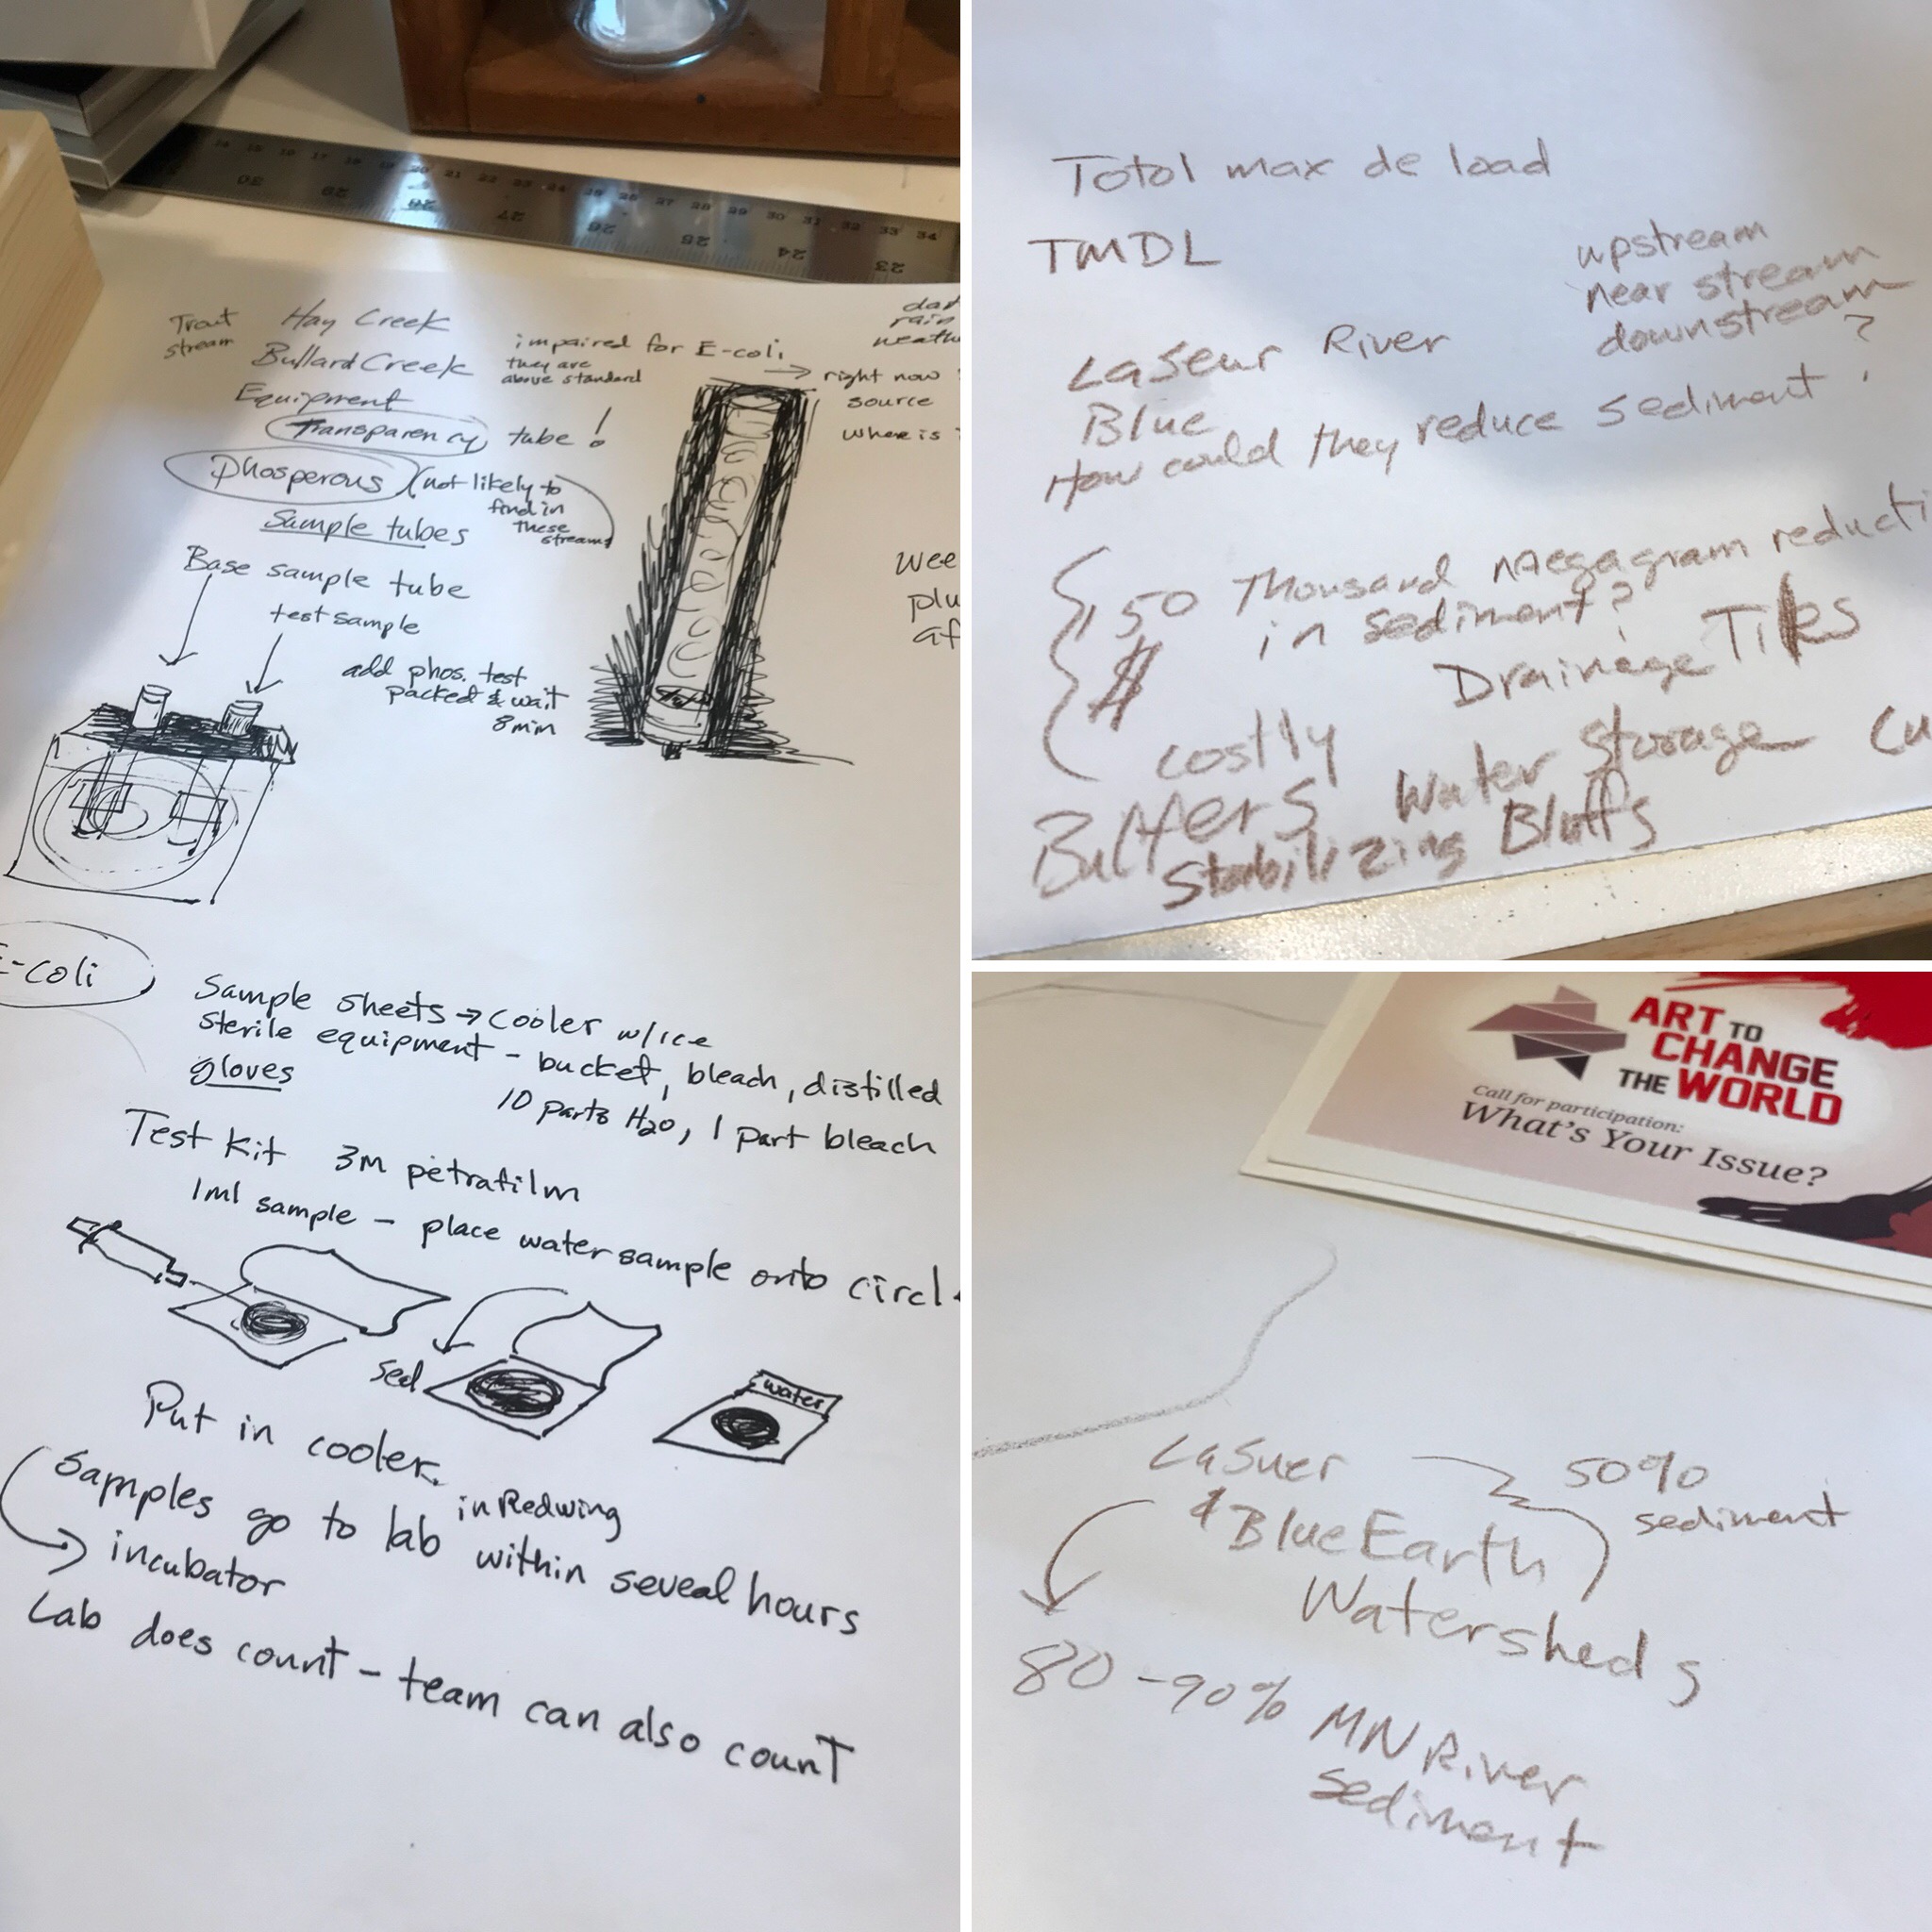 Trout stream
Hay Creek
Bullard Creek
impaired for E-coli
they are
above standard
rain
right now
source
where is
Equipment
Transparency tube!
phosperous (not likely to
find in
these
streams
Sample tubes
Base sample tube
test sample
add phos. test
packed & wait
8 min
E-coli
Sample sheets → cooler w/ice
sterile equipment - bucket, bleach, distilled
gloves
10 parts H2O, 1 part bleach
Test Kit 3M petrafilm
1ml sample - place water sample onto circl
Seal
water
Put in cooler.
Samples go to lab in Redwing within seveal hours
incubator
Lab does count - team can also count
14 15 16 17 18 19 20 21 22 23 24 25 26 27 28 29 30 31 32 33 34
30 29 28 27 26 25 24 23
Totol max de load
TMDL
upstream
near stream
downstream
?
LaSeur River
Blue
How could they reduce sediment?
50 Thousand Megagram reducti
in sediment?
$
Drainage Tiles
costly
Water Storage Cu
Buffers
Stabilizing Bluffs
ART TO
CHANGE
THE WORLD
Call for participation:
What's Your Issue?
LaSuer
& Blue Earth
Watersheds
50%
sediment
80-90% MN River
sediment